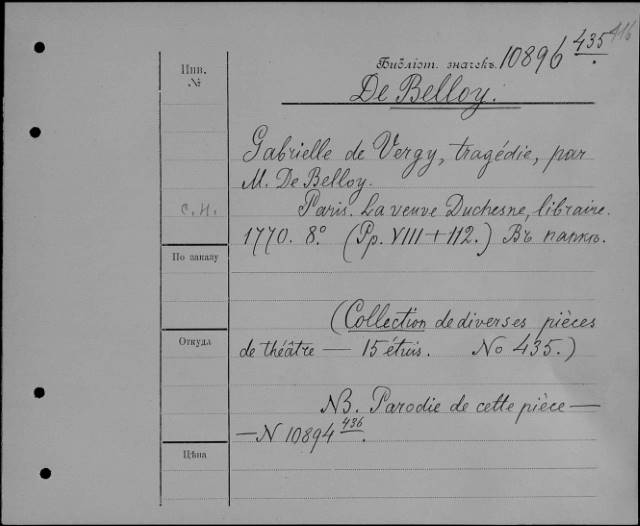 416
Библіот. значекъ. 10896 435.
Инв.
№
De Belloy.
Gabrielle de Vergy, tragédie, par
M. De Belloy.
С. Н.
Paris. La veuve Duchesne, libraire.
1770. 8º (Pp. VIII + 112.) Въ папкѣ.
По заказу
(Collection de diverses pièces
Откуда
de théâtre — 15 étuis. No 435.)
NB. Parodie de cette pièce —
— N 10894 436.
Цѣна